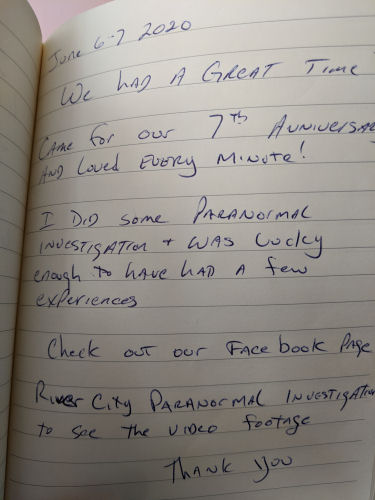 June 6-7 2020
We had a Great Time
Came for our 7th Anniversar
and loved EVERY Minute!
I Did some Paranormal
investigation + was Lucky
enough to have had a few
experiences
Check out our Facebook Page
River City Paranormal Investigation
to see the video footage
Thank you